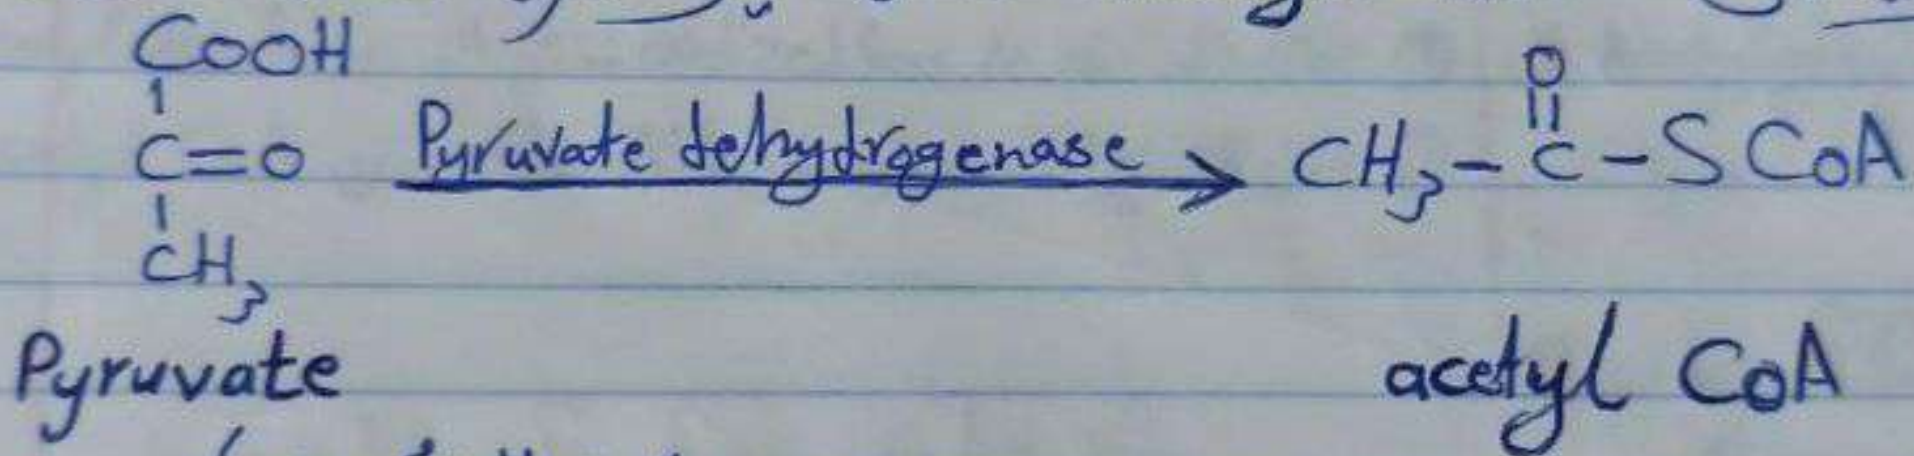 COOH
C=O
CH3
Pyruvate dehydrogenase
O
CH3-C-SCoA
Pyruvate
acetyl CoA